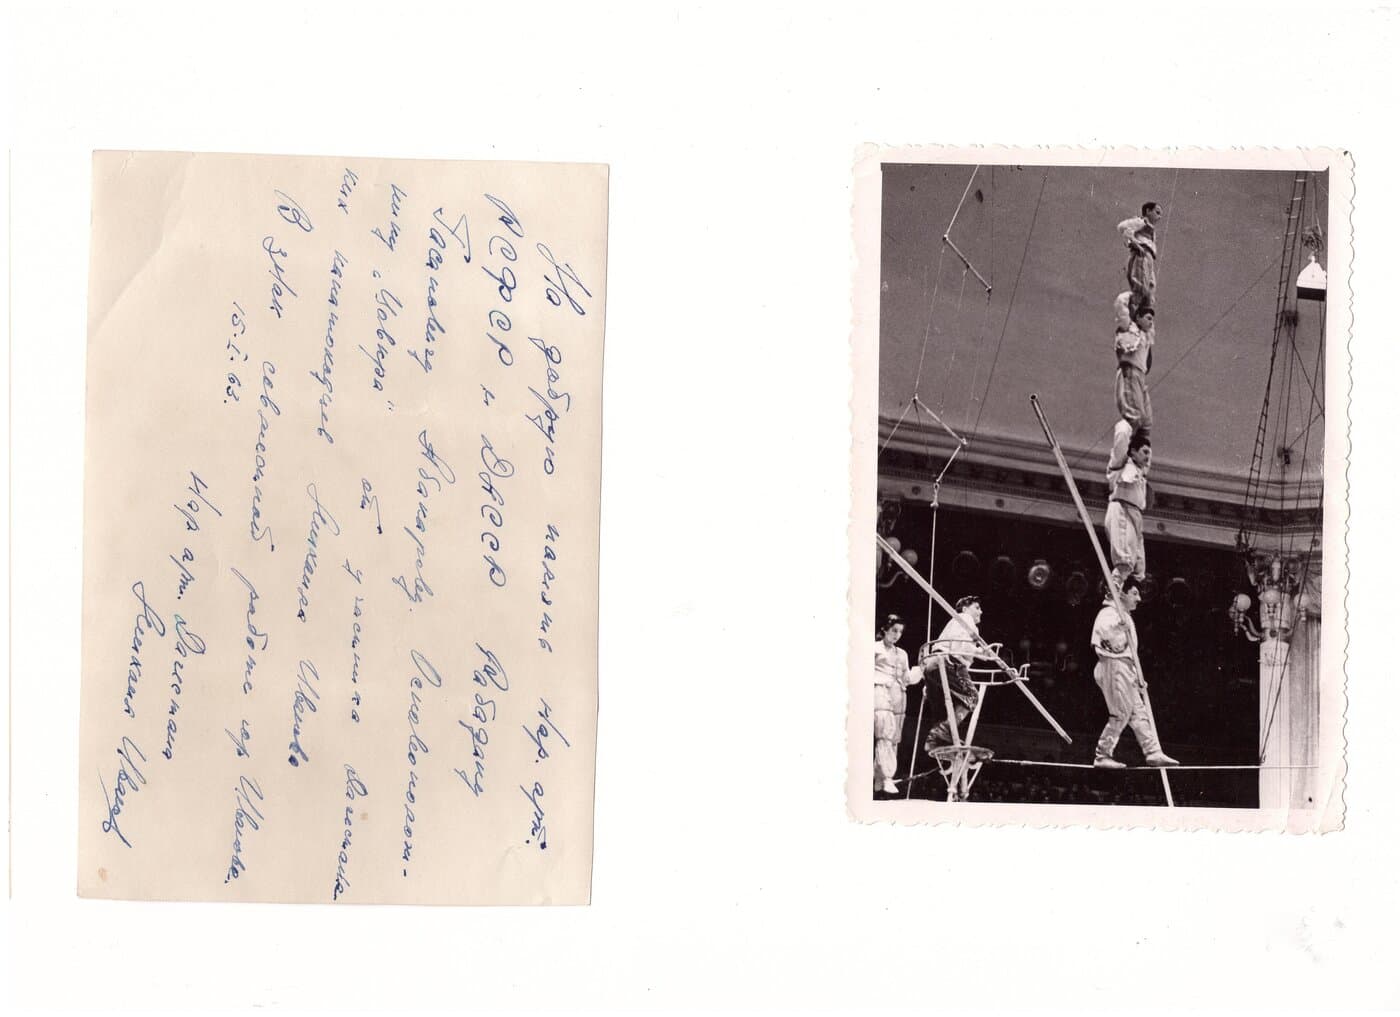 На добрую память нар. арт.
РСФСР и ДАССР Рабадану
Гасановичу Абакарову. Основополож-
нику „Цовкра" от участника Дагестанс-
ких канатоходцев Иванова
В знак совместной работы гр. Иванова.
15.I.63.
Нар арт. Дагестана
Иванов